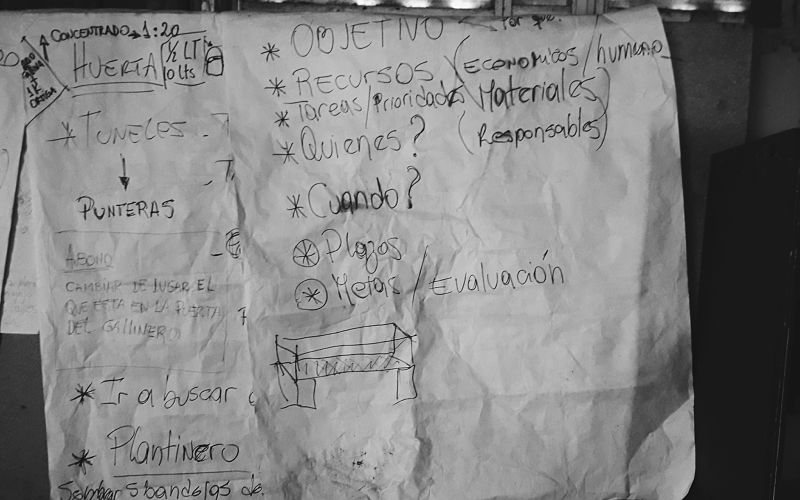 CONCENTRADO → 1:20
HUERTA
½ LT
10 Lts
* TUNELES
PUNTERAS
ABONO
CAMBIAR DE LUGAR EL
QUE ESTA EN LA PUERTA
DEL GALLINERO
* Ir a buscar
* Plantinero
Sembrar 5 bandejas de
Por que.
* OBJETIVO
* RECURSOS (ECONOMICOS / humano
Materiales)
* Tareas / Prioridades
* Quienes? (Responsables)
* Cuando?
* Plazos
* Metas / Evaluación